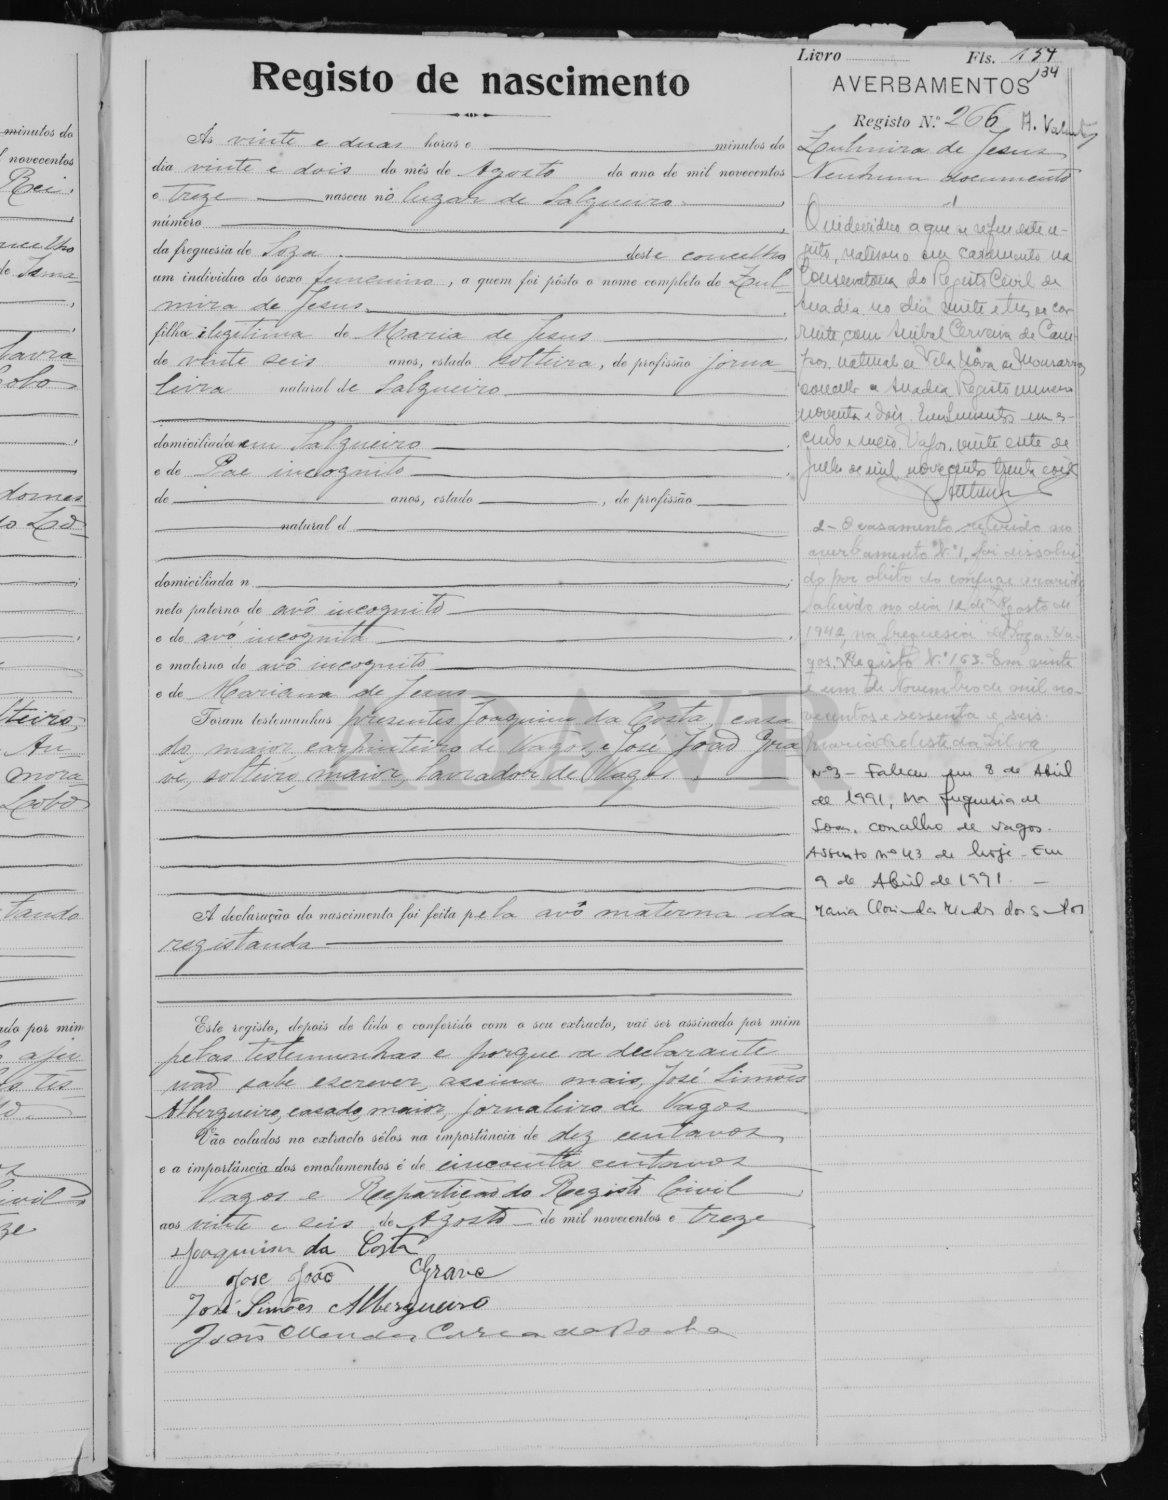 minutos do
l novecentos
Rei.
ncelho
tavra
Lobo
domes
Lobo
tando
ado por mim
Livro Fls. 134
134
Registo de nascimento
AVERBAMENTOS
Registo N.º 266
Zulmira de Jesus
Nenhum documento
Ás vinte e duas horas e minutos do
dia vinte e dois do mês de Agosto do ano de mil novecentos
e treze nasceu nó lugar de Salgueiro
número
da freguesia de Soza deste concelho
um indivíduo do sexo femenino, a quem foi pôsto o nome completo de Zul-
mira de Jesus
filha ilegitima de Maria de Jesus
de vinte seis anos, estado solteira, de profissão jorna
leira natural de Salgueiro
domiciliada em Salgueiro
e de Pae incognito
de anos, estado, de profissão
natural d
domiciliada n
neto paterno de avô incognito
e de avó incognita
e materno de avô incognito
e de Mariana de Jesus
Foram testemunhas presentes, Joaquim da Costa, casa
do, maior, carpinteiro de Vagos, e José João Gra
ve, solteiro, maior, lavrador de Vagos.
A declaração do nascimento foi feita pela avó materna da
registanda
Este registo, depois de lido e conferido com o seu extracto, vai ser assinado por mim
pelas testemunhas e porque a declarante
não sabe escrever, assina mais, José Simões
Albergueiro, casado, maior, jornaleiro de Vagos
Vão colados no extracto sêlos na importância de dez centavos
e a importância dos emolumentos é de cincoenta centavos
Vagos e Repartição do Registo Civil
aos vinte e seis de Agosto de mil novecentos e treze
Joaquim da Costa
José João Grave
José Simões Albergueiro
João Mendes Correa da Rocha
1
O individuo a que se refere este re-
gisto, matrimonio em casamento na
Conservatoria do Registo Civil de
Anadia no dia vinte e tres do cor
rente com Anibal Cerveira de Cam
pos, natural de Vila Nova de Monsarros
concelho de Anadia. Registo numero
noventa e dois. Emolumentos um es-
cudo e meio. Vagos, vinte e sete de
Julho de mil novecentos trinta e
2- O casamento referido no
averbamento N.º 1, foi dissolvi
do por obito do conjuge marido
falecido no dia 12 de Agosto de
1942, na freguesia de Soza, Va-
gos. Registo N.º 163. Em vinte
e um de Novembro de mil no-
vecentos e sessenta e seis.
Maria Celeste da Silva
Nº3 - Faleceu em 8 de Abril
de 1991, na freguesia de
Soza, concelho de Vagos.
Assento nº 43 de hoje. Em
9 de Abril de 1991. —
ADAVR